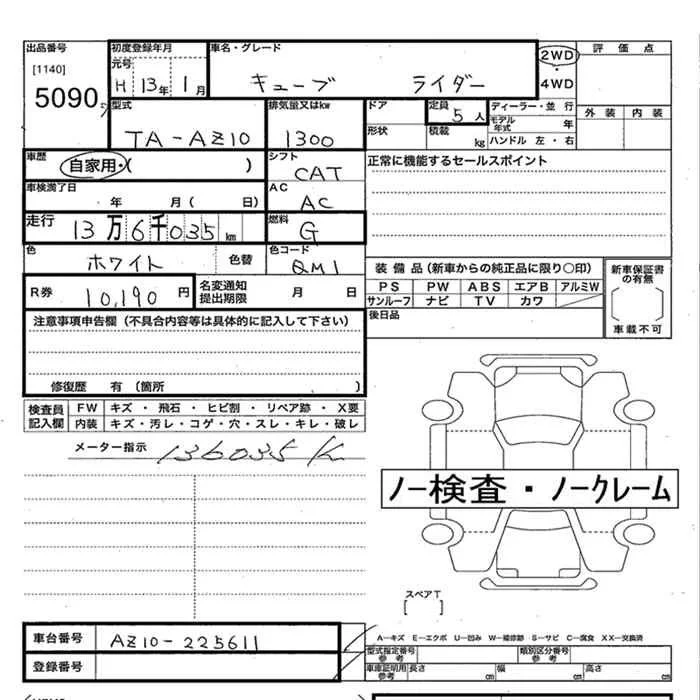 出品番号
[1140]
5090
初度登録年月
元号
H 13年 1月
車名・グレード
キューブ ライダー
2WD
4WD
評価点
外装 内装
型式
TA-AZ10
排気量又はkw
1300
ドア
形状
定員
5人
積載
kg
ディーラー・並行
モデル年式 年
ハンドル 左・右
車歴
自家用・( )
シフト
CAT
正常に機能するセールスポイント
車検満了日
年 月( 日)
AC
AC
走行
13万6千035km
燃料
G
色
ホワイト
色替
色コード
QM1
装備品(新車からの純正品に限り○印)
PS PW ABS エアB アルミW
サンルーフ ナビ TV カワ
新車保証書の有無
[ ]
車載不可
R券
10,190円
名変通知
提出期限
月 日
後日品
注意事項申告欄(不具合内容等は具体的に記入して下さい)
修復歴 有(箇所 )
検査員
記入欄
FW キズ・飛石・ヒビ割・リペア跡・X要
内装 キズ・汚レ・コゲ・穴・スレ・キレ・破レ
メーター指示
136035K
ノー検査・ノークレーム
スペアT
[ ]
車台番号
AZ10-225611
登録番号
A―キズ E―エクボ U―凹み W―補修跡 S―サビ C―腐食 XX―交換済
型式指定番号
参考
類別区分番号
参考
車庫証明用
参考
長さ cm 幅 cm 高さ cm